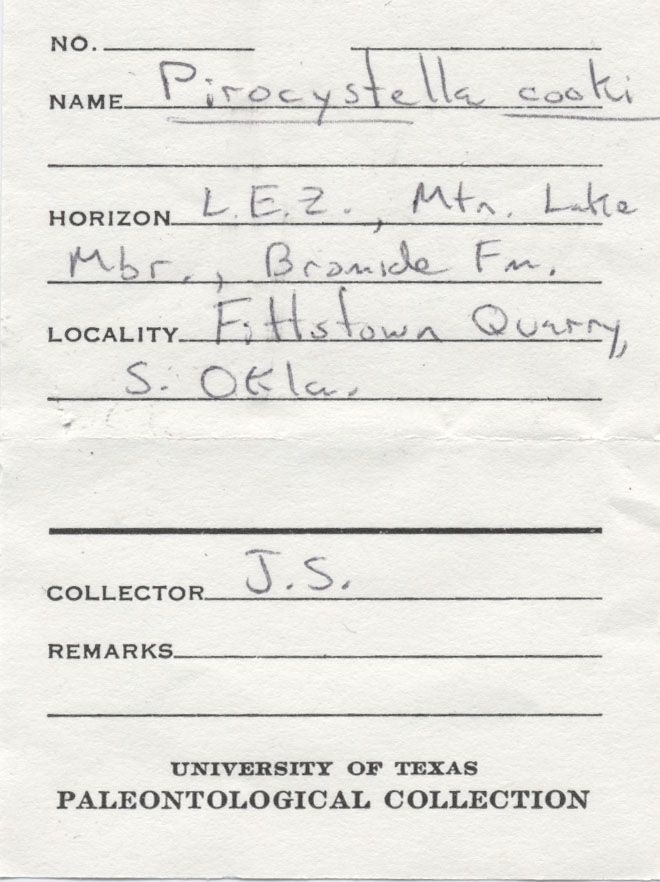 NO.
NAME Pirocystella cooki
HORIZON L.E.Z., Mtn. Lake
Mbr., Bromide Fm.
LOCALITY Fittstown Quarry,
S. Okla.
COLLECTOR J.S.
REMARKS
UNIVERSITY OF TEXAS
PALEONTOLOGICAL COLLECTION